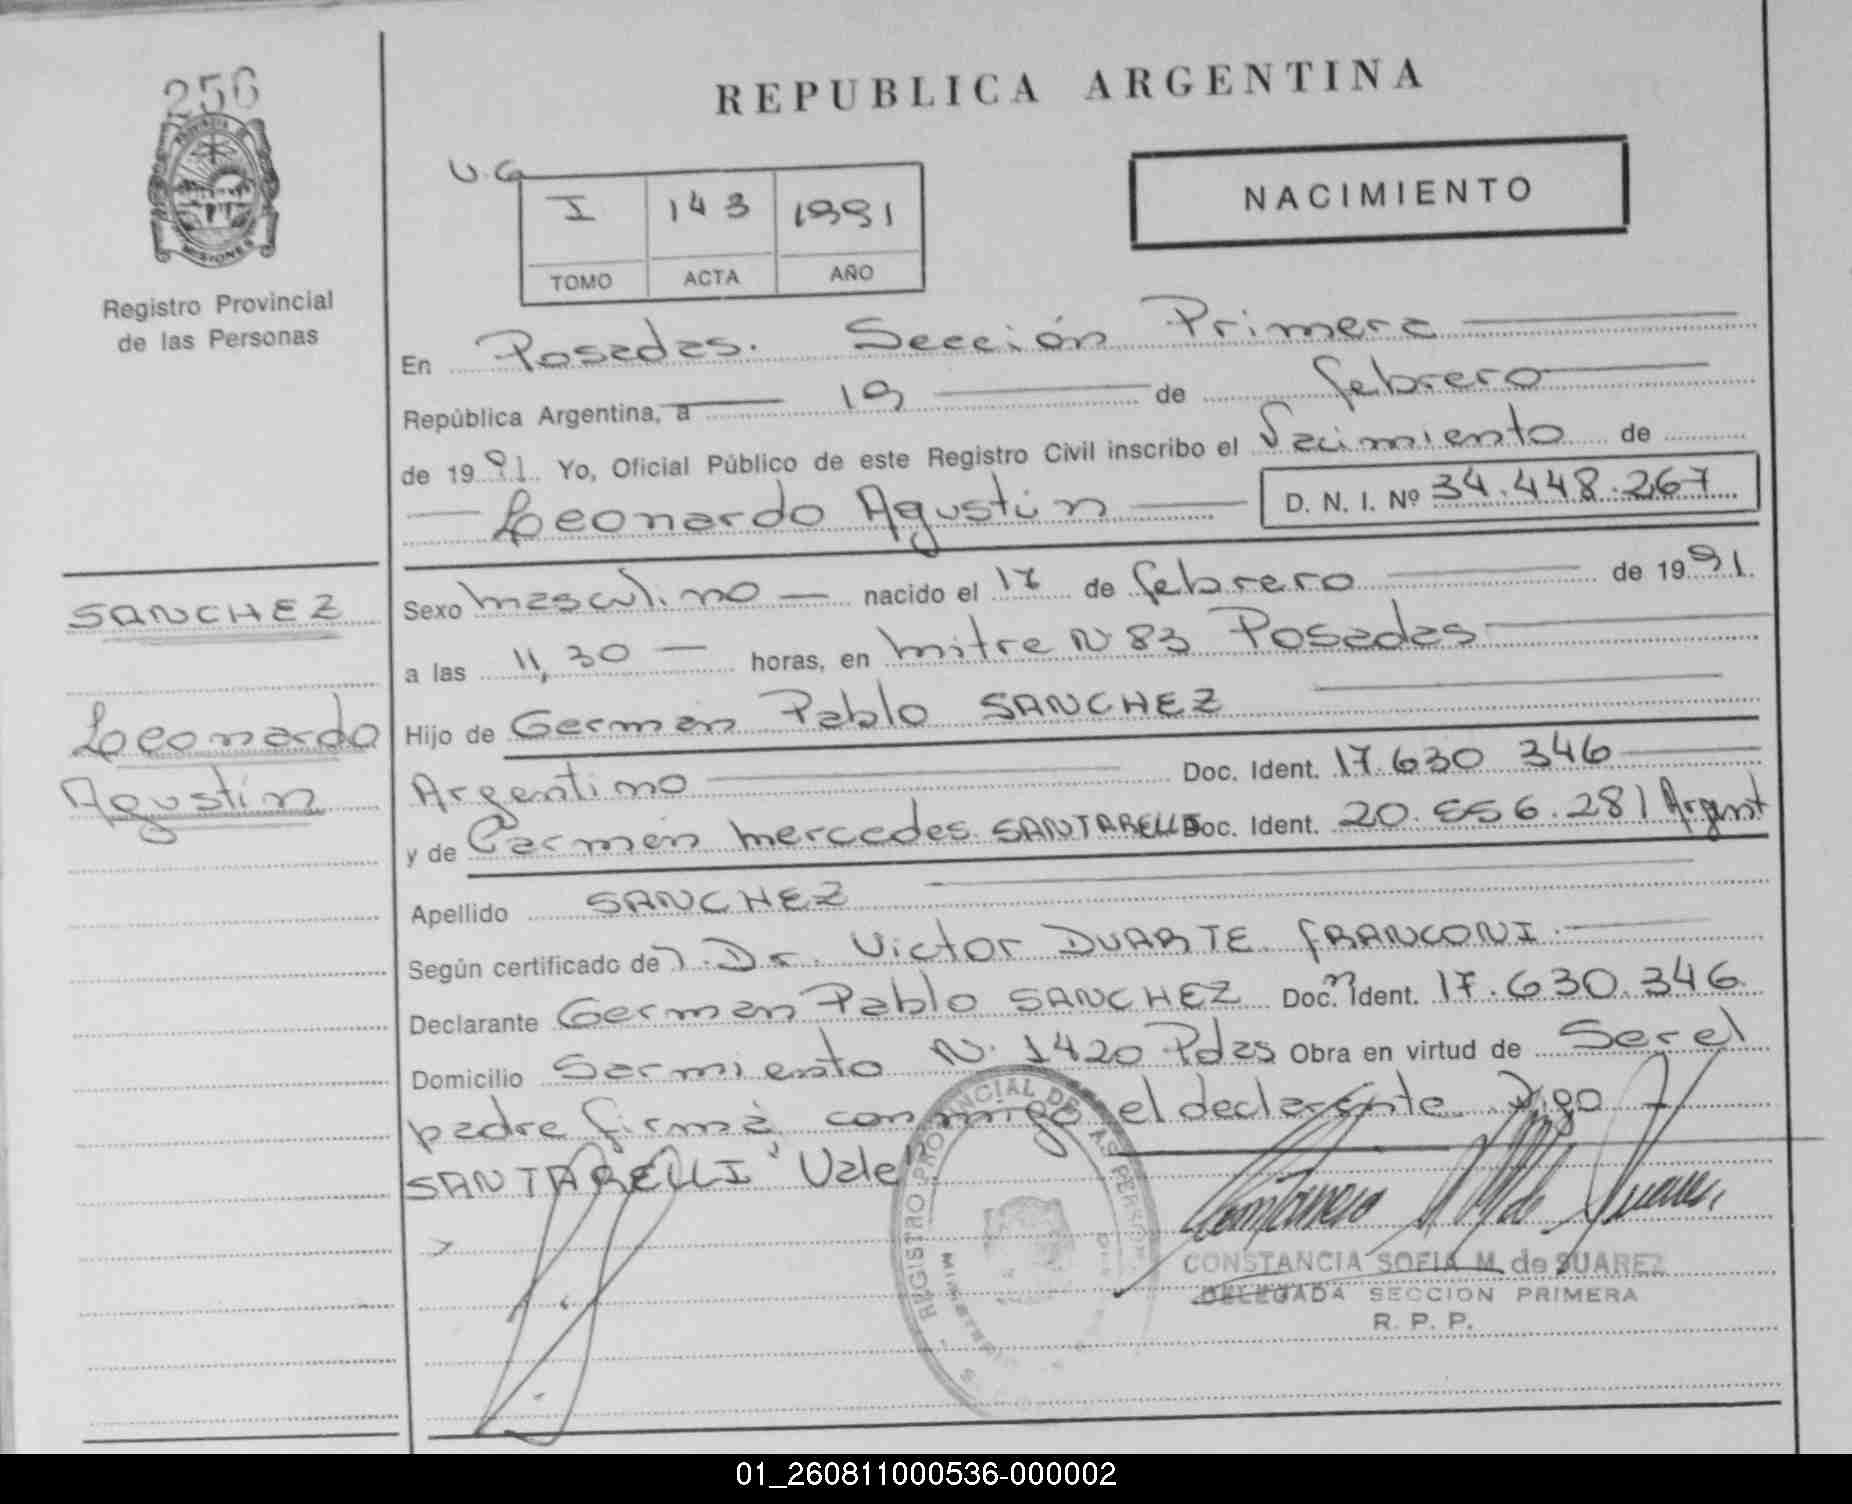 256
PROVINCIA DE
MISIONES
Registro Provincial
de las Personas
SANCHEZ
Leonardo
Agustín
REPUBLICA ARGENTINA
NACIMIENTO
U.G
I 143 1991
TOMO ACTA AÑO
En Posadas. Sección Primera
República Argentina, a 19 de febrero
de 1991. Yo, Oficial Público de este Registro Civil inscribo el Nacimiento de
Leonardo Agustín D. N. I. Nº 34.448.267
Sexo masculino nacido el 17 de febrero de 1991.
a las 11,30 horas, en mitre N 83 Posadas
Hijo de German Pablo SANCHEZ
Argentino Doc. Ident. 17.630 346
y de Carmen mercedes SANTARELLI Doc. Ident. 20.656.281 Argent
Apellido SANCHEZ
Según certificado de Dr. Victor DUARTE FRANCONI.
Declarante German Pablo SANCHEZ Doc. Ident. 17.630.346
Domicilio Sarmiento N. 1420 Pdas Obra en virtud de Ser el
padre firma conmigo el declarante. Digo
SANTARELLI "Vale"
REGISTRO PROVINCIAL DE LAS PERSONAS
CONSTANCIA SOFIA M. de SUAREZ
DELEGADA SECCION PRIMERA
R. P. P.
01_260811000536-000002